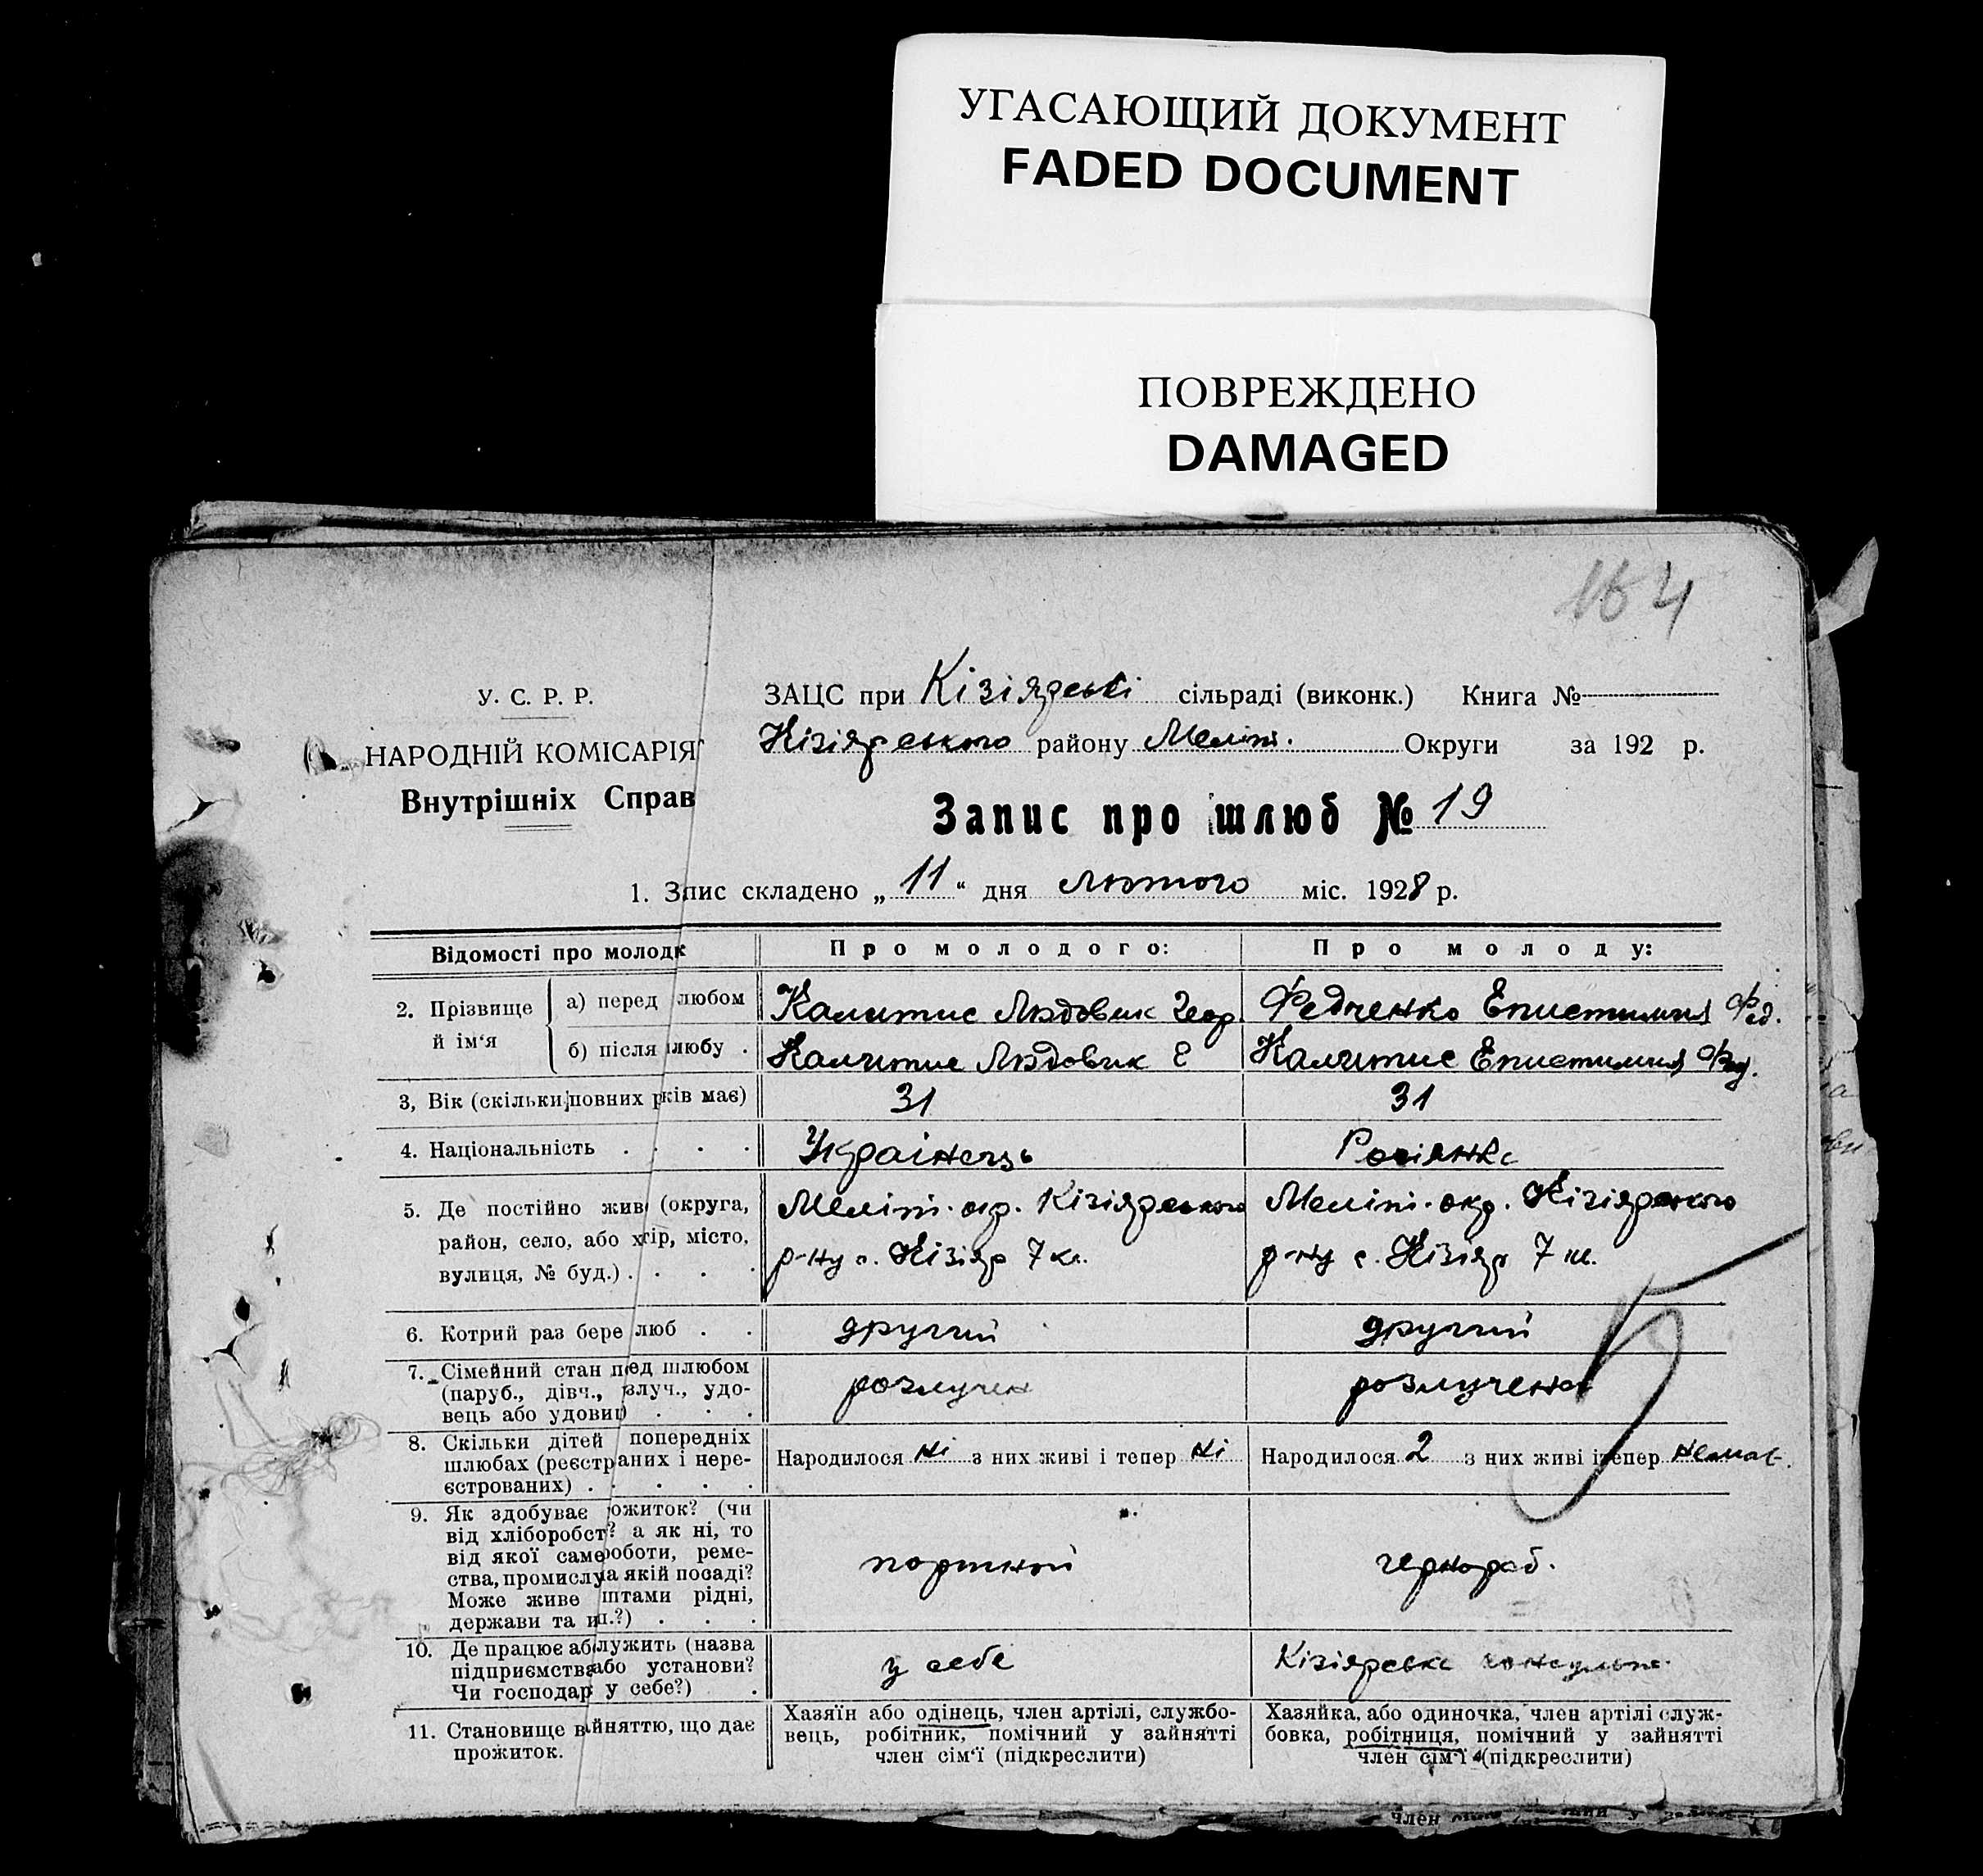 УГАСАЮЩИЙ ДОКУМЕНТ
FADED DOCUMENT
ПОВРЕЖДЕНО
DAMAGED
164
У. С. Р. Р.
НАРОДНІЙ КОМІСАРІЯ
Внутрішніх Справ
ЗАЦС при Кізіярські сільраді (виконк.) Книга №
Кізіярського району Меліт. Округи за 192 р.
Запис про шлюб № 19
1. Запис складено „ 11 “ дня лютого міс. 1928 р.
Відомості про молодк
Про молодого:
Про молоду:
2. Прізвище й ім‘я
а) перед любом
Калитис Людовик Геор.
Федченко Епистимия Фед.
б) після любу .
Калитис Людовик Г
Калитис Епистимия Фед.
3, Вік (скільки повних рків має)
31
31
4. Національність . . . .
Українець
Росіянка
5. Де постійно жив (округа,
район, село, або хтір, місто,
вулиця, № буд.) . . . .
Меліт. окр. Кізіярського
р-ну с. Кізіяр 7 кл.
Меліт. окр. Кізіярского
р-ну с. Кізіяр 7 кл.
6. Котрий раз бере люб . .
другий
другий
7. Сімейний стан пед шлюбом
(паруб., дівч., злуч., удо-
вець або удовиц) . . .
розлучен
розлучена
8. Скільки дітей попередніх
шлюбах (реєстраних і нере-
єстрованих) . . . . .
Народилося ні з них живі і тепер ні
Народилося 2 з них живі і тепер немає.
9. Як здобуває ожиток? (чи
від хліборобст? а як ні, то
від якої саме оботи, реме-
ства, промислу а якій посаді?
Може живе штами рідні,
держави та ин.?) . . .
портной
чернораб.
10. Де працює аб лужить (назва
підприємства або установи?
Чи господар у себе?) .
у себе
Кізіярська
11. Становище в айняттю, що дає
прожиток.
Хазяїн або одінець, член артілі, службо-
вець, робітник, помічний у зайнятті
член сім‘ї (підкреслити)
Хазяйка, або одиночка, член артілі служ-
бовка, робітниця, помічний у зайнятті
член сім‘ї (підкреслити)
член